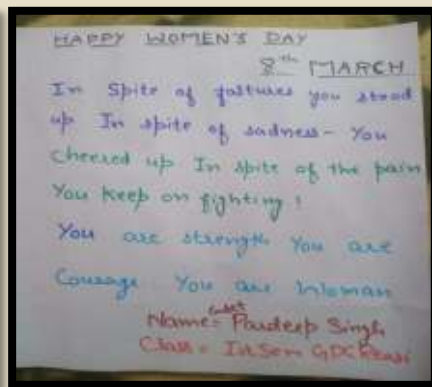 HAPPY WOMEN'S DAY
8th MARCH
In Spite of you stood
up In spite of sadness - You
Cheered up In spite of the pain
You Keep on fighting !
You are strength You are
Courage You are Woman
Cadet
Name = Pardeep Singh
Class = Ist Sem GDC Reasi